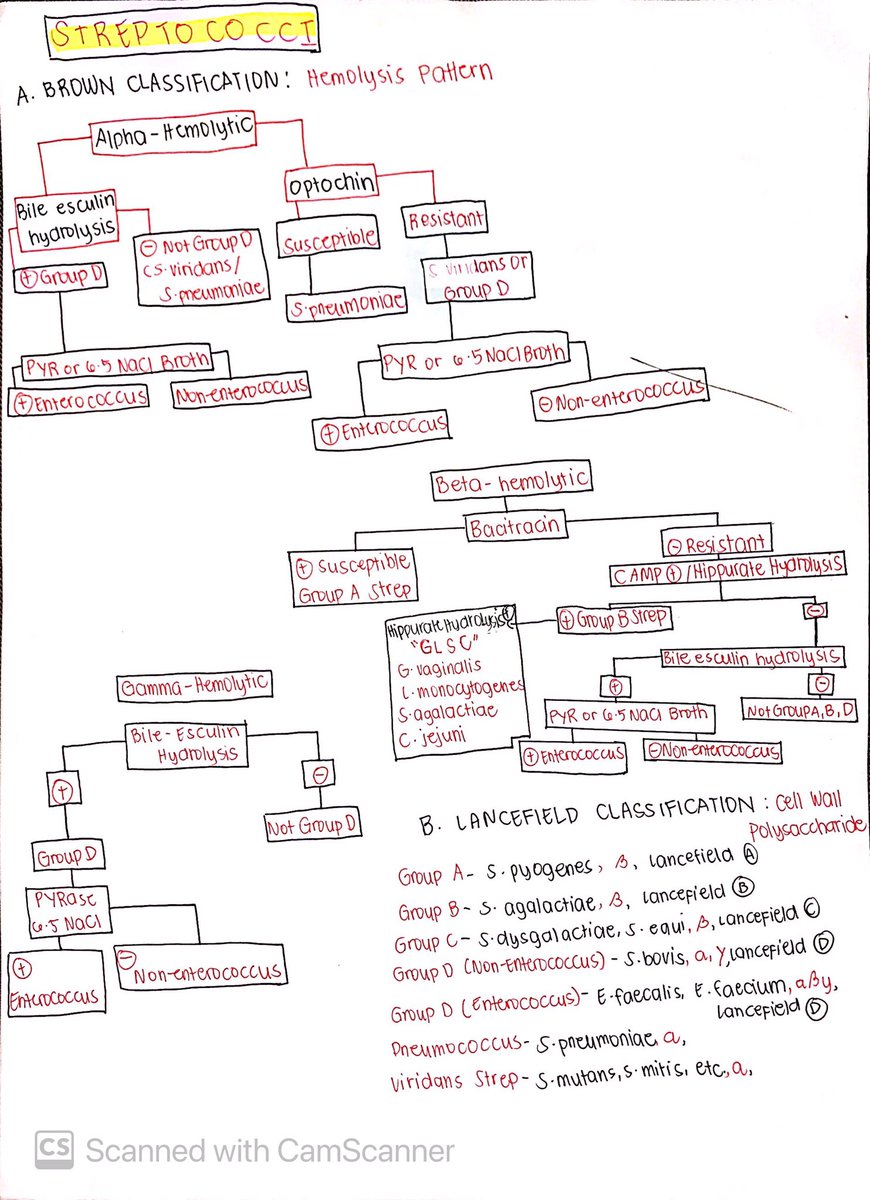 STREPTOCOCCI
A. BROWN CLASSIFICATION: Hemolysis Pattern
Alpha-Hemolytic
Bile esculin
hydrolysis
⊖ Not Group D
CS.viridans/
S.pneumoniae
⊕ Group D
PYR or 6.5 NaCl Broth
⊕ Enterococcus
Non-enterococcus
Optochin
Susceptible
S.pneumoniae
Resistant
S.viridans or
Group D
PYR or 6.5 NaCl Broth
⊕ Enterococcus
⊖ Non-enterococcus
Beta-hemolytic
Bacitracin
⊕ Susceptible
Group A Strep
⊖ Resistant
CAMP ⊕/Hippurate Hydrolysis
⊕ Group B Strep
⊖
Hippurate Hydrolysis ⊕
"GLSC"
G.vaginalis
L.monocytogenes
S.agalactiae
C.jejuni
Bile esculin hydrolysis
⊕
⊖
PYR or 6.5 NaCl Broth
Not Group A, B, D
⊕ Enterococcus
⊖ Non-enterococcus
Gamma-Hemolytic
Bile-Esculin
Hydrolysis
⊕
⊖
Not Group D
Group D
PYRase
6.5 NaCl
⊕
Enterococcus
⊖
Non-enterococcus
B. LANCEFIELD CLASSIFICATION: Cell Wall
Polysaccharide
Group A- S.pyogenes, β, lancefield Ⓐ
Group B- S.agalactiae, β, lancefield Ⓑ
Group C- S.dysgalactiae, S.equi, β, lancefield Ⓒ
Group D (Non-Enterococcus)- S.bovis, α, γ, lancefield Ⓓ
Group D (Enterococcus)- E.faecalis, E.faecium, αβγ,
lancefield Ⓓ
Pneumococcus- S.pneumoniae, α,
Viridans Strep- S.mutans, S.mitis, etc, α,
CS Scanned with CamScanner